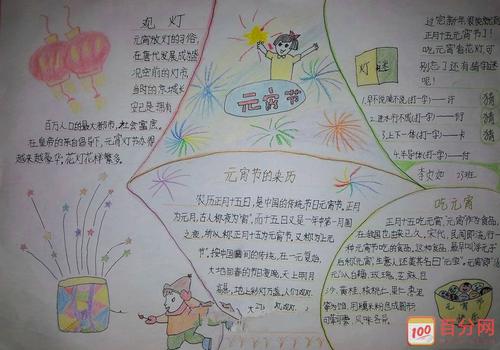 观灯
元宵放灯的习俗,
在唐代发展成盛
况空前的灯市,
当时的京城长
安已是拥有
百万人口的最大都市,社会富庶。
在皇帝的亲自倡导下,元宵灯节办得
越来越豪华,花灯花样繁多。
元宵节
正月十五元宵节了!
吃元宵看花灯,可
别忘了还有猜字谜
呢!
灯谜
1.早不说晚不说(打一字)——许
猜
2.进水行不成(打一字)——衍
猜
3.上下一体(打一字)——卡
4.半导体(打一字)——付
元宵节的来历
农历正月十五日,是中国的传统节日元宵节,正月
为元月,古人称夜为宵,而十五日又是一年中第一个月圆
之夜,所以称正月十五为元宵节,又称为上元
节,按中国民间的传统,在一元复始,
大地回春的节日夜晚,天上明月
高悬,地上彩灯万盏,人们观灯、
吃元宵
正月十五吃元宵,元宵作为食品,
在我国也由来已久,宋代,民间即流行一
种元宵节吃的食品,这种食品,最早叫浮元子
后称元宵,生意人还美其名曰元宝。元宵即汤
圆以白糖、玫瑰、芝麻、豆
沙、黄桂、核桃仁、果仁、枣泥
等为馅,用糯米粉包成圆形,
可荤可素,风味各异。
元宵节
快乐
100
百分网